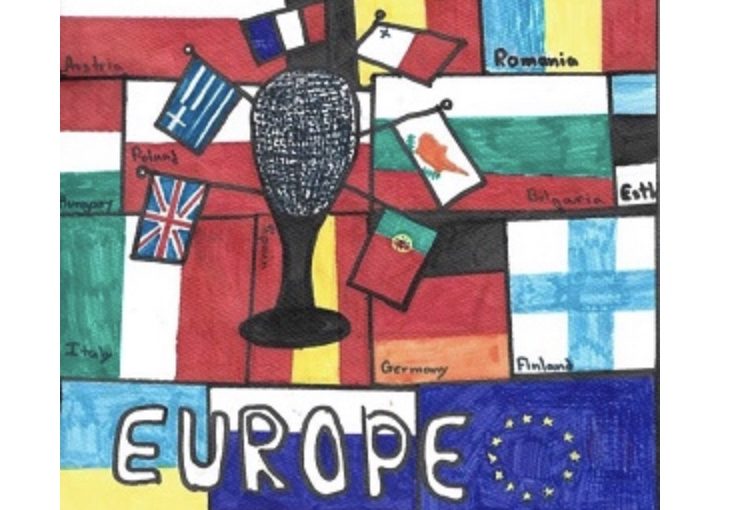 Austria
Romania
Poland
Hungary
Bulgaria
Esth
Spain
Italy
Germany
Finland
EUROPE